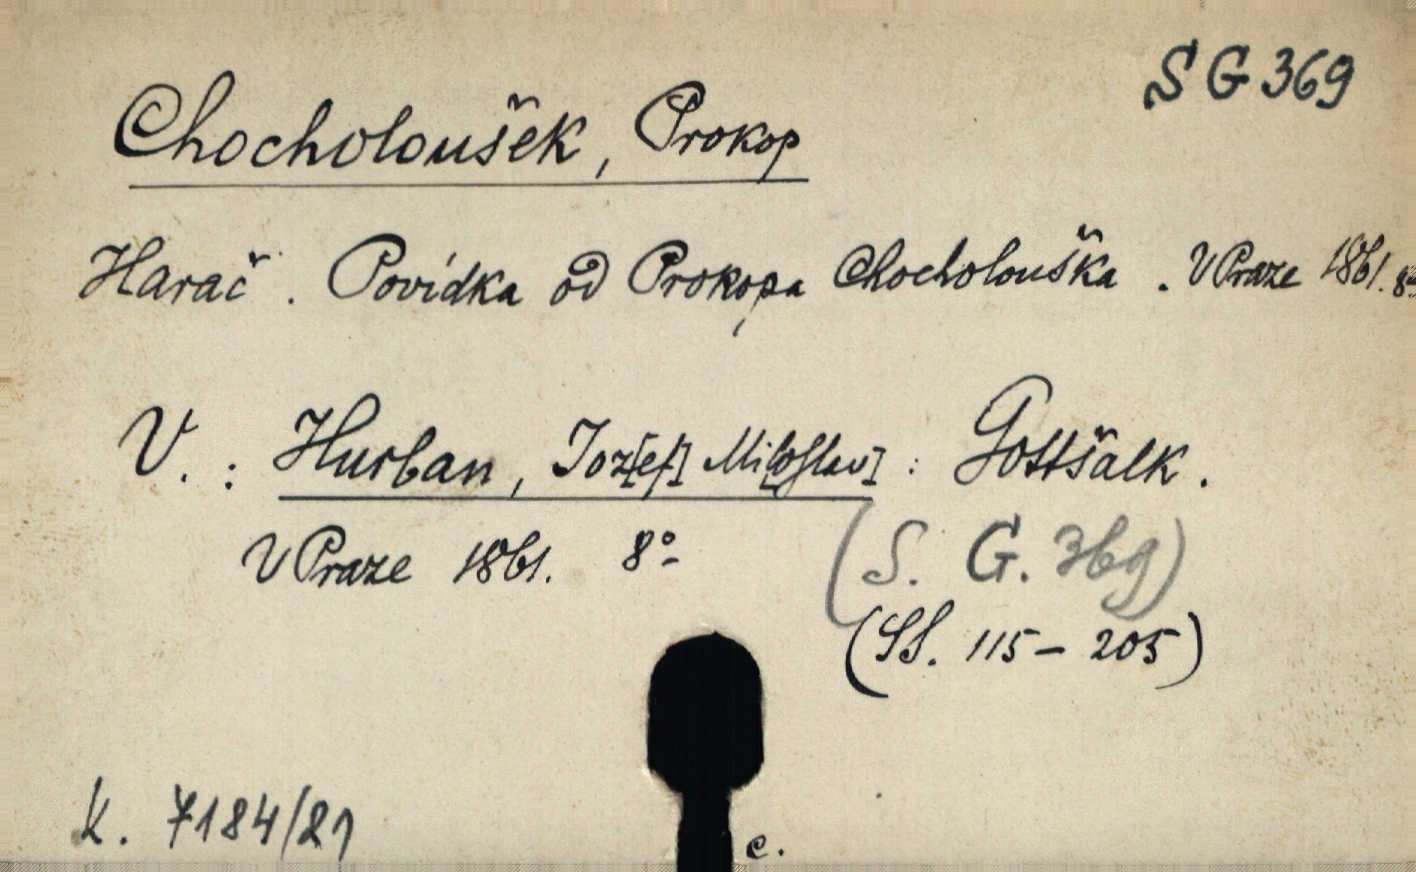 SG 369
Chocholoušek, Prokop
Harač. Povídka od Prokopa Chocholouška. V Praze 1861. 8°
V.: Hurban, Joz[ef] Miloslav]: Gottšalk.
V Praze 1861. 8°-
(S. G. 369)
(SS. 115-205)
K. 7184/21
c.